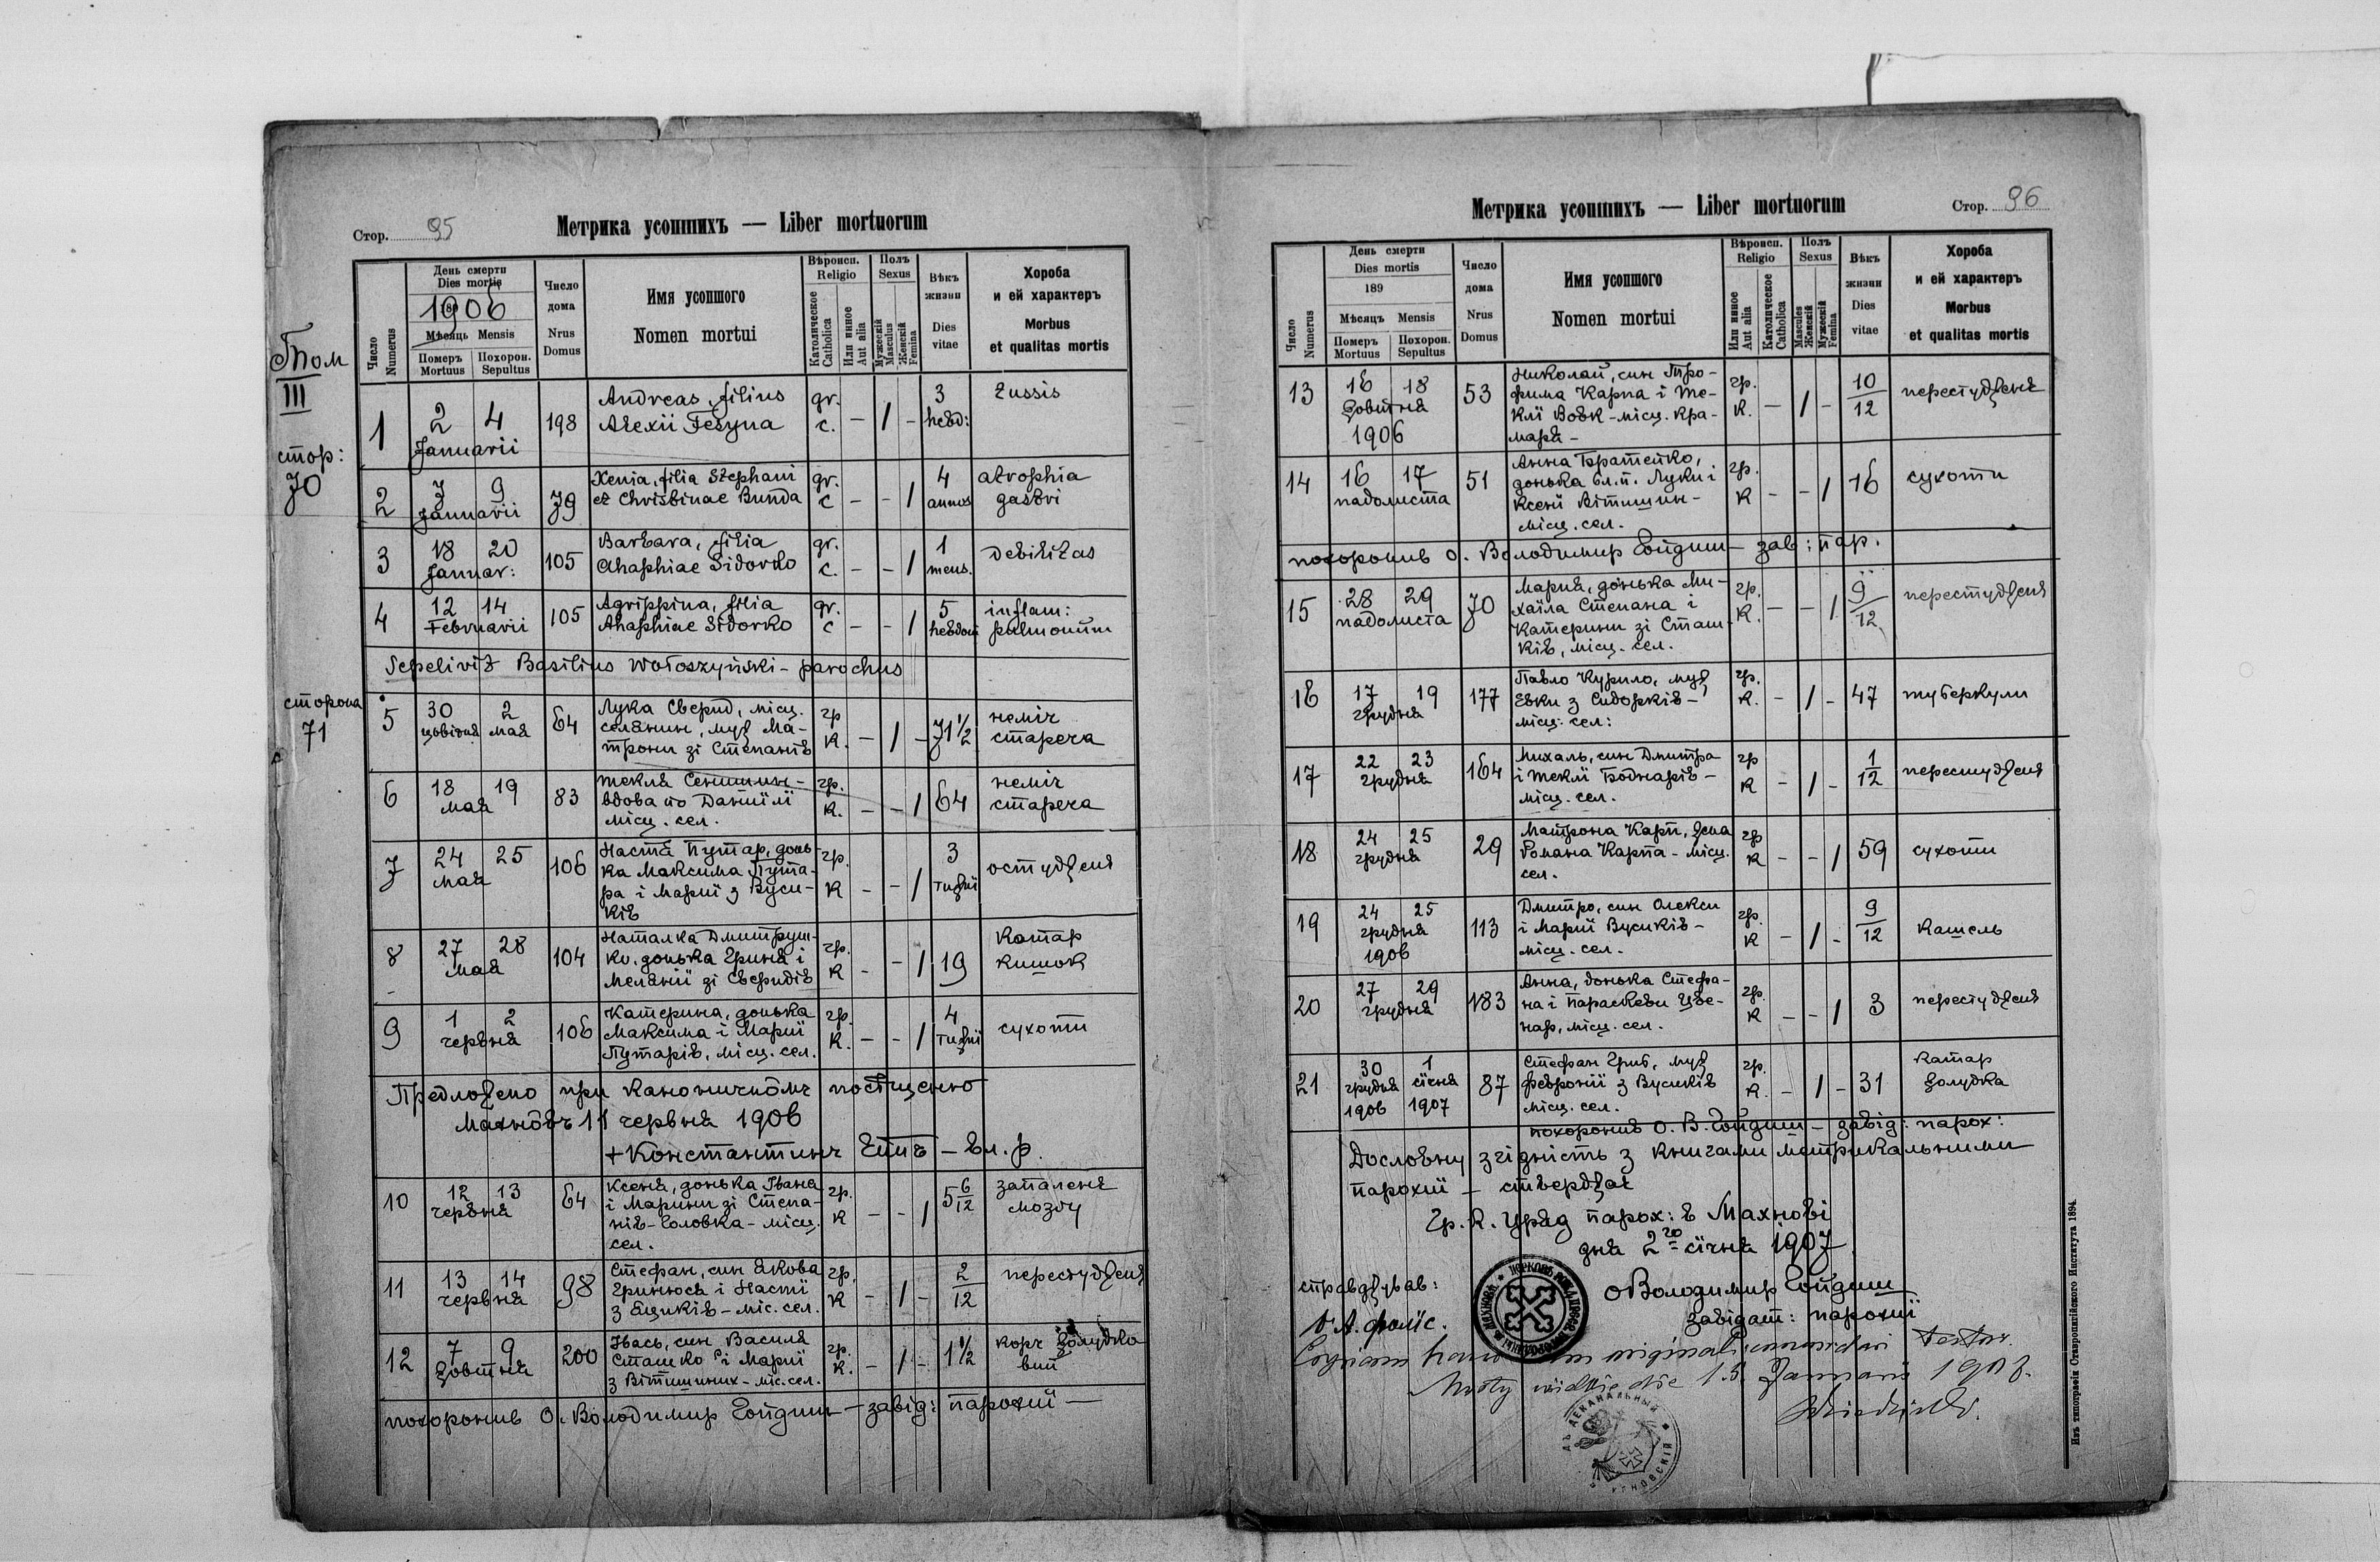 Стор. 95
Метрика усопшихъ — Liber mortuorum
Число
Numerus
День смерти
Dies mortis
1906
Мѣсяць Mensis
Померъ
Mortuus
Похорон.
Sepultus
Число
дома
Nrus
Domus
Имя усопшого
Nomen mortui
Вѣроисп.
Religio
Католическое
Catholica
Или инное
Aut alia
Полъ
Sexus
Мужескій
Masculus
Женскій
Femina
Вѣкъ
жизни
Dies
vitae
Хороба
и ей характеръ
Morbus
et qualitas mortis
Том
III
стор:
70
1
2 4
Januarii
198
Andreas, filius
Alexii Fesyna
gr.
c.
– / –
3
hebd:
tussis
2
7 9
Januarii
79
Xenia, filia Stephani
et Christinae Bunda
gr.
c
– – /
4
annos
atrophia
gastri
3
18 20
Januar:
105
Barbara, filia
Ahaphiae Sidorko
gr.
c.
– – /
1
mens.
debilitas
4
12 14
Februarii
105
Agrippina, filia
Ahaphiae Sidorko
gr.
c
– – /
5
inflam:
pulmonum
Sepelivit Basilius Wołoszyński – parochus
сторона
71
5
30 2
цвітня мая
64
Лука Сверид, місц.
селянин, муж Ма-
трони зі Степанів
гр
к.
– / –
71 1/2
неміч
стареча
6
18 19
мая
83
Текля Сенишин –
вдова по Даниїлї
місц. сел.
гр.
к.
– – /
64
неміч
стареча
7
24 25
мая
106
Настя Путар, донь-
ка Максима Пута-
ра і Марії з Вуси-
ків
гр.
к
– – /
3
тижнї
остудженя
8
27 28
мая
104
Наталка Дмитруш-
ко, донька Гриня і
Меланії зі Сверидів
гр.
к
– – /
19
катар
кишок
9
1 2
червня
106
Катерина, донька
Максима і Марії
Путарів, місц. сел.
гр.
к.
– – /
4
тижнї
сухоти
Предложено при каноничнôмъ посѣщеню
Махнôвъ 11 червня 1906
+ Константинъ Епп҃ъ – вл. р.
10
12 13
червня
64
Ксеня, донька Івана
і Марини зі Степа-
нів – Головка – місц.
сел.
гр.
к
– – /
5 6/12
запаленя
мозгу
11
13 14
червня
98
Стефан, син Якова
Гриньоса і Настї
з Яциків – міс. сел.
гр.
к
– / –
2/12
перестудженя
12
7 9
жовтня
200
Івась, син Василя
Сташко і Марії
з Вітишиних – міс. сел.
гр.
к.
– / –
1 1/2
корч жолудко
вий
похоронив О. Володимир Гойдиш – завід: парохії –
Метрика усопшихъ — Liber mortuorum
Стор. 96
Число
Numerus
День смерти
Dies mortis
189
Мѣсяцъ Mensis
Померъ
Mortuus
Похорон.
Sepultus
Число
дома
Nrus
Domus
Имя усопшого
Nomen mortui
Вѣроисп.
Religio
Или инное
Aut alia
Католическое
Catholica
Полъ
Sexus
Mascules
Женскій
Мужескій
Femina
Вѣкъ
жизни
Dies
vitae
Хороба
и ей характеръ
Morbus
et qualitas mortis
13
16 18
жовтня
1906
53
Николай, син Тро-
фима Карпа і Те-
клї Вовк – місц. кра-
маря –
гр.
к.
– / –
10/12
перестудженя
14
16 17
падолиста
51
Анна Братейко,
донька бл. п. Луки і
Ксенї Вітишин –
місц. сел.
гр.
к
– – /
16
сухоти
похоронив О. Володимир Гойдиш – зав: пар.
15
28 29
падолиста
70
Мария, донька Ми-
хаїла Степана і
Катерини зі Сташ-
ків, місц. сел.
гр.
к.
– – /
9/12
перестудженя
16
17 19
грудня
177
Павло Курило, муж
Евки з Сидорків –
місц. сел:
гр.
к.
– / –
47
туберкули
17
22 23
грудня
164
Михаль, син Дмитра
і Теклї Боднарів –
місц. сел.
гр
к
– / –
1/12
перестудженя
18
24 25
грудня
29
Матрона Карп, жена
Романа Карпа – місц.
сел.
гр
к
– – /
59
сухоти
19
24 25
грудня
1906
113
Дмитро, син Олекси
і Марії Вусиків –
місц. сел.
гр.
к
– / –
9/12
кашель
20
27 29
грудня
183
Анна, донька Стефа-
на і Параскеви Цве-
нар, місц. сел.
гр.
к
– – /
3
перестудженя
21
30 1
грудня сїчня
1906 1907
87
Стефан Гриб, муж
Февронії з Вусиків
місц. сел.
гр.
к.
– / –
31
катар
жолудка
похоронив О. В. Гойдиш – завід: парох:
Дословну згідність з книгами метрикальними
парохії – стверджає
Гр. к. уряд парох: в Махнові
дня 2го сїчня 1907
справджував:
о Володимир Гойдиш
завідат: парохії
1907
Изъ типографіи Ставропигійского Института 1894